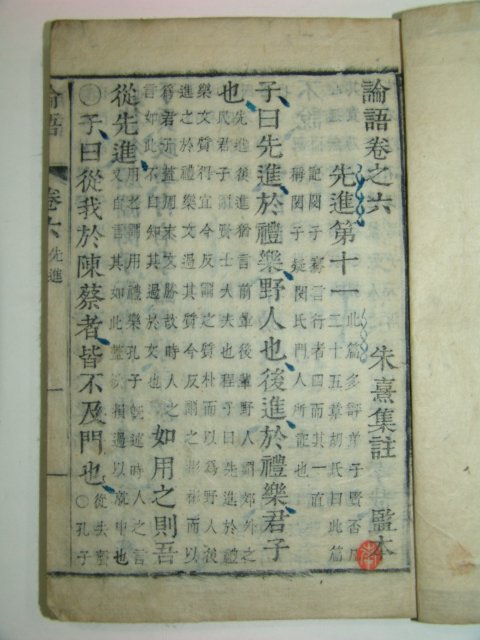 論語卷之六 朱熹集註 監本
先進第十一
此篇多評弟子賢否凡
二十五章胡氏曰此篇
記閔子騫言行者四而其一直
稱閔子疑閔氏門人所記也
子曰先進於禮樂野人也後進於禮樂君子
也
先進後進猶言前輩後輩野人謂郊外之
民君子謂賢士大夫也程子曰先進於禮
樂文質得宜今反謂之質朴而以爲野人後
進之於禮樂文過其質今反謂之彬彬而以
爲君子蓋周末文勝故時人之
言如此不自知其過於文也
如用之則吾
從先進
用之謂用禮樂孔子旣述時人之言
又自言其如此蓋欲損過以就中也
○子曰從我於陳蔡者皆不及門也
從去聲
○孔子
論語 卷六 先進 一